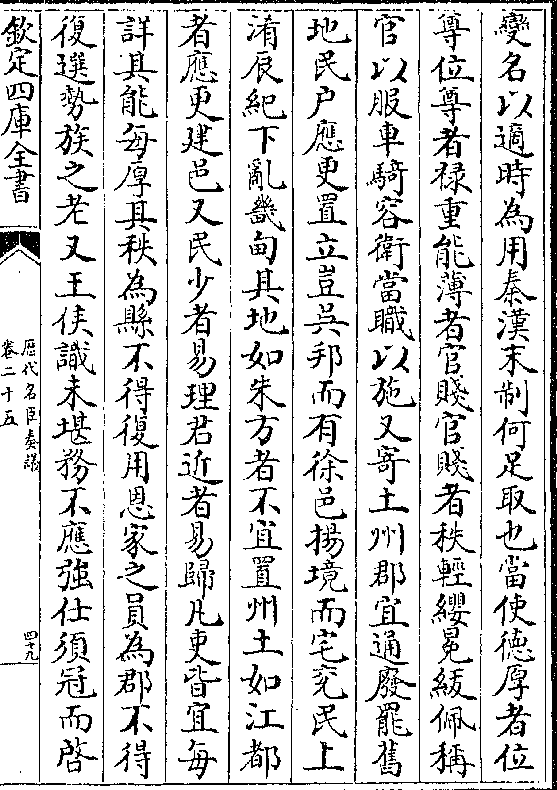 變名以適時為用秦漢末制何足取也當使德厚者位
尊位尊者禄重能薄者官賤官賤者秩輕纓冕紱佩稱
官以服車騎容衛當職以施又寄土州郡宜通廢罷舊
地民户應更置立豈吳邦而有徐邑揚境而宅兖民上
淆辰紀下亂畿甸其地如朱方者不宜置州土如江都
者應更建邑又民少者易理君近者易歸凡吏皆宜每
詳其能每厚其秩為縣不得復用恩家之員為郡不得
復選勢族之老又王侯識未堪務不應強仕須冠而啓
欽定四庫全書
歴代名臣奏議
卷二十五
四十九